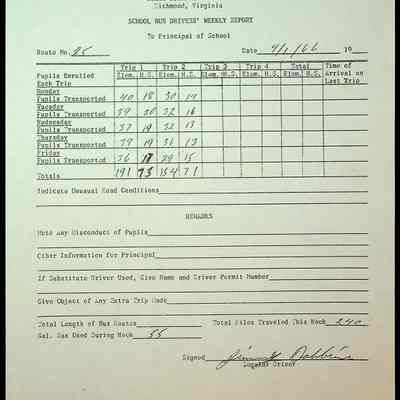 Richmond, Virginia
SCHOOL BUS DRIVERS' WEEKLY REPORT
To Principal of School
Route No. 25 Date 9/1/66 19
Trip 1 Trip 2 Trip 3 Trip 4 Total Time of
Pupils Enrolled Elem. H.S. Elem. H.S. Elem. H.S. Elem. H.S. Elem. H.S. Arrival on
Each Trip Last Trip
Monday
Pupils Transported 40 18 30 14
Tuesday
Pupils Transported 39 20 32 16
Wednesday
Pupils Transported 37 19 32 13
Thursday
Pupils Transported 39 19 36 13
Friday
Pupils Transported 36 17 24 15
Totals 191 93 154 71
Indicate Unusual Road Conditions
REMARKS
Note Any Misconduct of Pupils
Other Information for Principal
If Substitute Driver Used, Give Name and Driver Permit Number
Give Object of Any Extra Trip Made
Total Length of Bus Routes Total Miles Traveled This Week 240
Gal. Gas Used During Week 55
Signed Jimmy Dobbins
Regular Driver